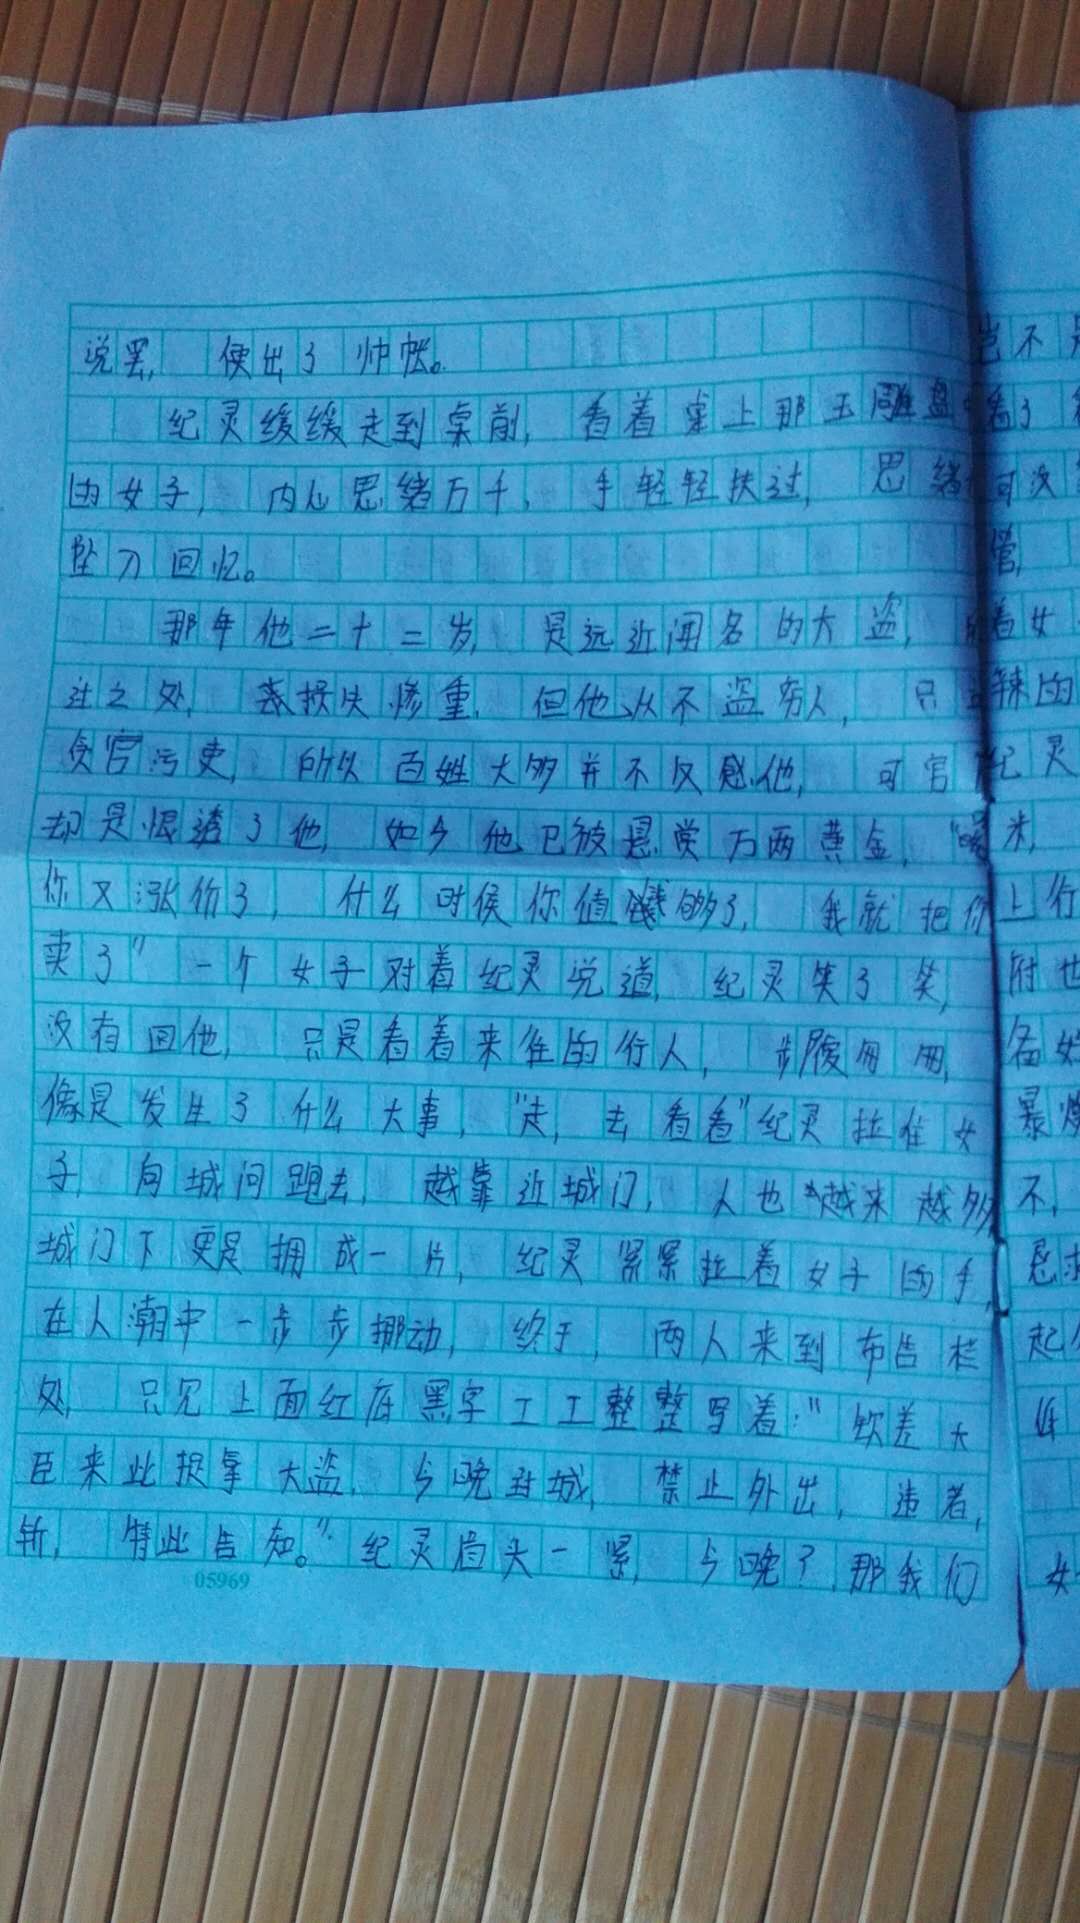 说罢, 便出了帅帐。
纪灵缓缓走到桌前, 看着桌上那玉雕
的女子, 内心思绪万千, 手轻轻抚过, 思绪
坠入回忆。
那年他二十二岁, 是远近闻名的大盗,
过之处, 损失惨重, 但他从不盗穷人, 只
贪官污吏, 所以百姓大多并不反感他, 可官
却是恨透了他, 如今他已被悬赏万两黄金, "
你又涨价了, 什么时候你值钱够了, 我就把你
卖了" 一个女子对着纪灵说道, 纪灵笑了笑,
没有回他, 只是看着来往的行人, 步履匆匆,
像是发生了什么大事, "走, 去看看"纪灵拉住女
子, 向城门跑去, 越靠近城门, 人也越来越多
城门下更是拥成一片, 纪灵紧紧拉着女子的手,
在人潮中一步步挪动, 终于, 两人来到布告栏
处, 只见上面红底黑字工工整整写着:"钦差大
臣来此捉拿大盗, 今晚封城, 禁止外出, 违者,
斩, 特此告知。" 纪灵眉头一紧, 今晚? 那我们
05969
岂不
看了
可没
管,
着女
辣的
纪灵
米,
上行
附也
备好
暴
不,
起
女